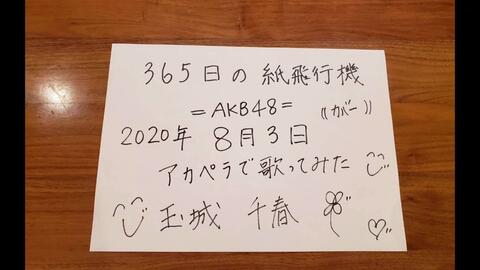 365日の紙飛行機
=AKB48= ((カバー))
2020年 8月3日
アカペラで歌ってみた
玉城 千春